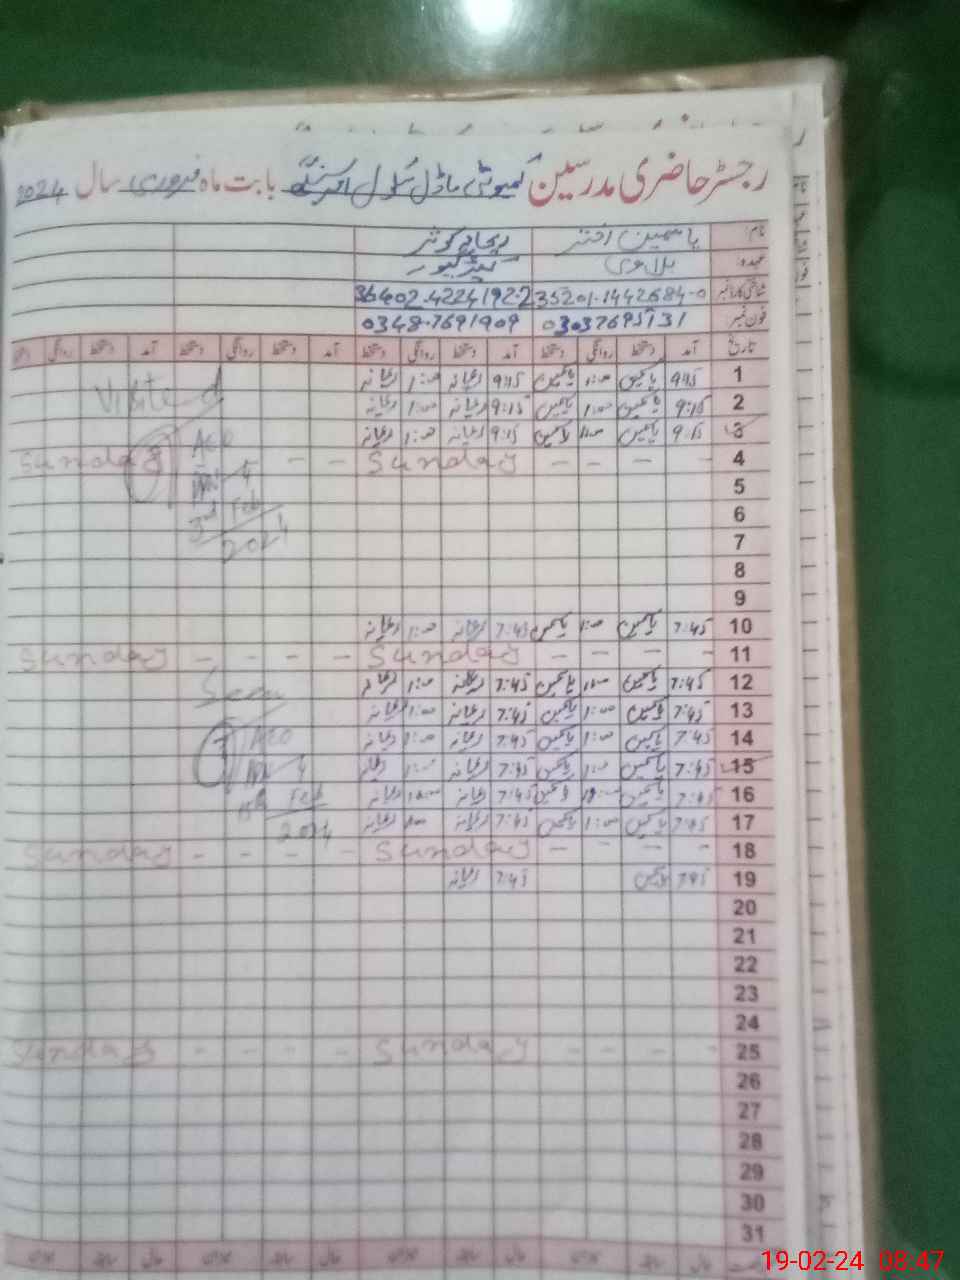 رجسٹر حاضری مدرسین کمیونٹی ماڈل سکول بابت ماہ فروری سال 2024
نام: یاسمین اختر ریحانہ کوثر
عہدہ: کیئر گیور
شناختی کارڈ نمبر 35201-1442684-0 36402-4224192-2
فون نمبر 03037695131 0348-7691909
تاریخ آمد دستخط روانگی دستخط آمد دستخط روانگی دستخط آمد دستخط روانگی دستخط آمد دستخط روانگی
1 9:15 یاسمین 1:00 یاسمین 9:15 ریحانہ 1:00 ریحانہ Visited
2 9:15 یاسمین 1:00 یاسمین 9:15 ریحانہ 1:00 ریحانہ
3 9:15 یاسمین 1:00 یاسمین 9:15 ریحانہ 1:00 ریحانہ AEO
4 - - - - Sunday - - Sunday
5
6 3rd Feb
7 2024
8
9
10 7:45 یاسمین 1:00 یاسمین 7:45 ریحانہ 1:00 ریحانہ
11 - - - - Sunday - - - - Sunday
12 7:45 یاسمین 1:00 یاسمین 7:45 ریحانہ 1:00 ریحانہ Seen
13 7:45 یاسمین 1:00 یاسمین 7:45 ریحانہ 1:00 ریحانہ
14 7:45 یاسمین 1:00 یاسمین 7:45 ریحانہ 1:00 ریحانہ AEO
15 7:45 یاسمین 1:00 یاسمین 7:45 ریحانہ 1:00 ریحانہ
16 7:45 یاسمین یاسمین 7:45 ریحانہ ریحانہ Feb
17 7:45 یاسمین 1:00 یاسمین 7:45 ریحانہ ریحانہ 2024
18 - - - - Sunday - - - - Sunday
19 7:45 یاسمین 7:45 ریحانہ
20
21
22
23
24
25 - - - - Sunday - - - - Sunday
26
27
28
29
30
31
19-02-24 08:47